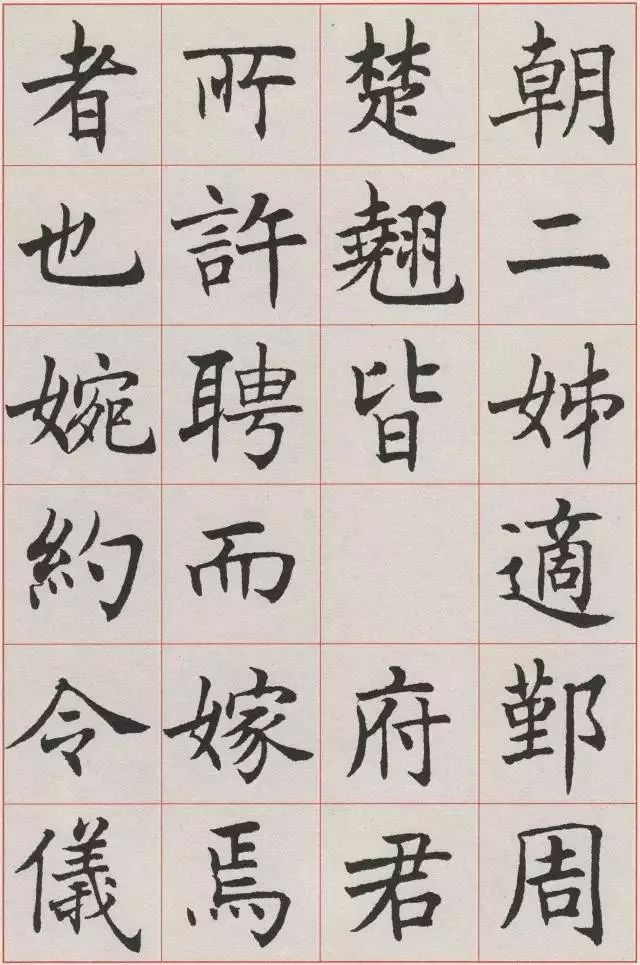 朝二姊適鄞周
楚翹皆府君
所許聘而嫁焉
者也婉約令儀